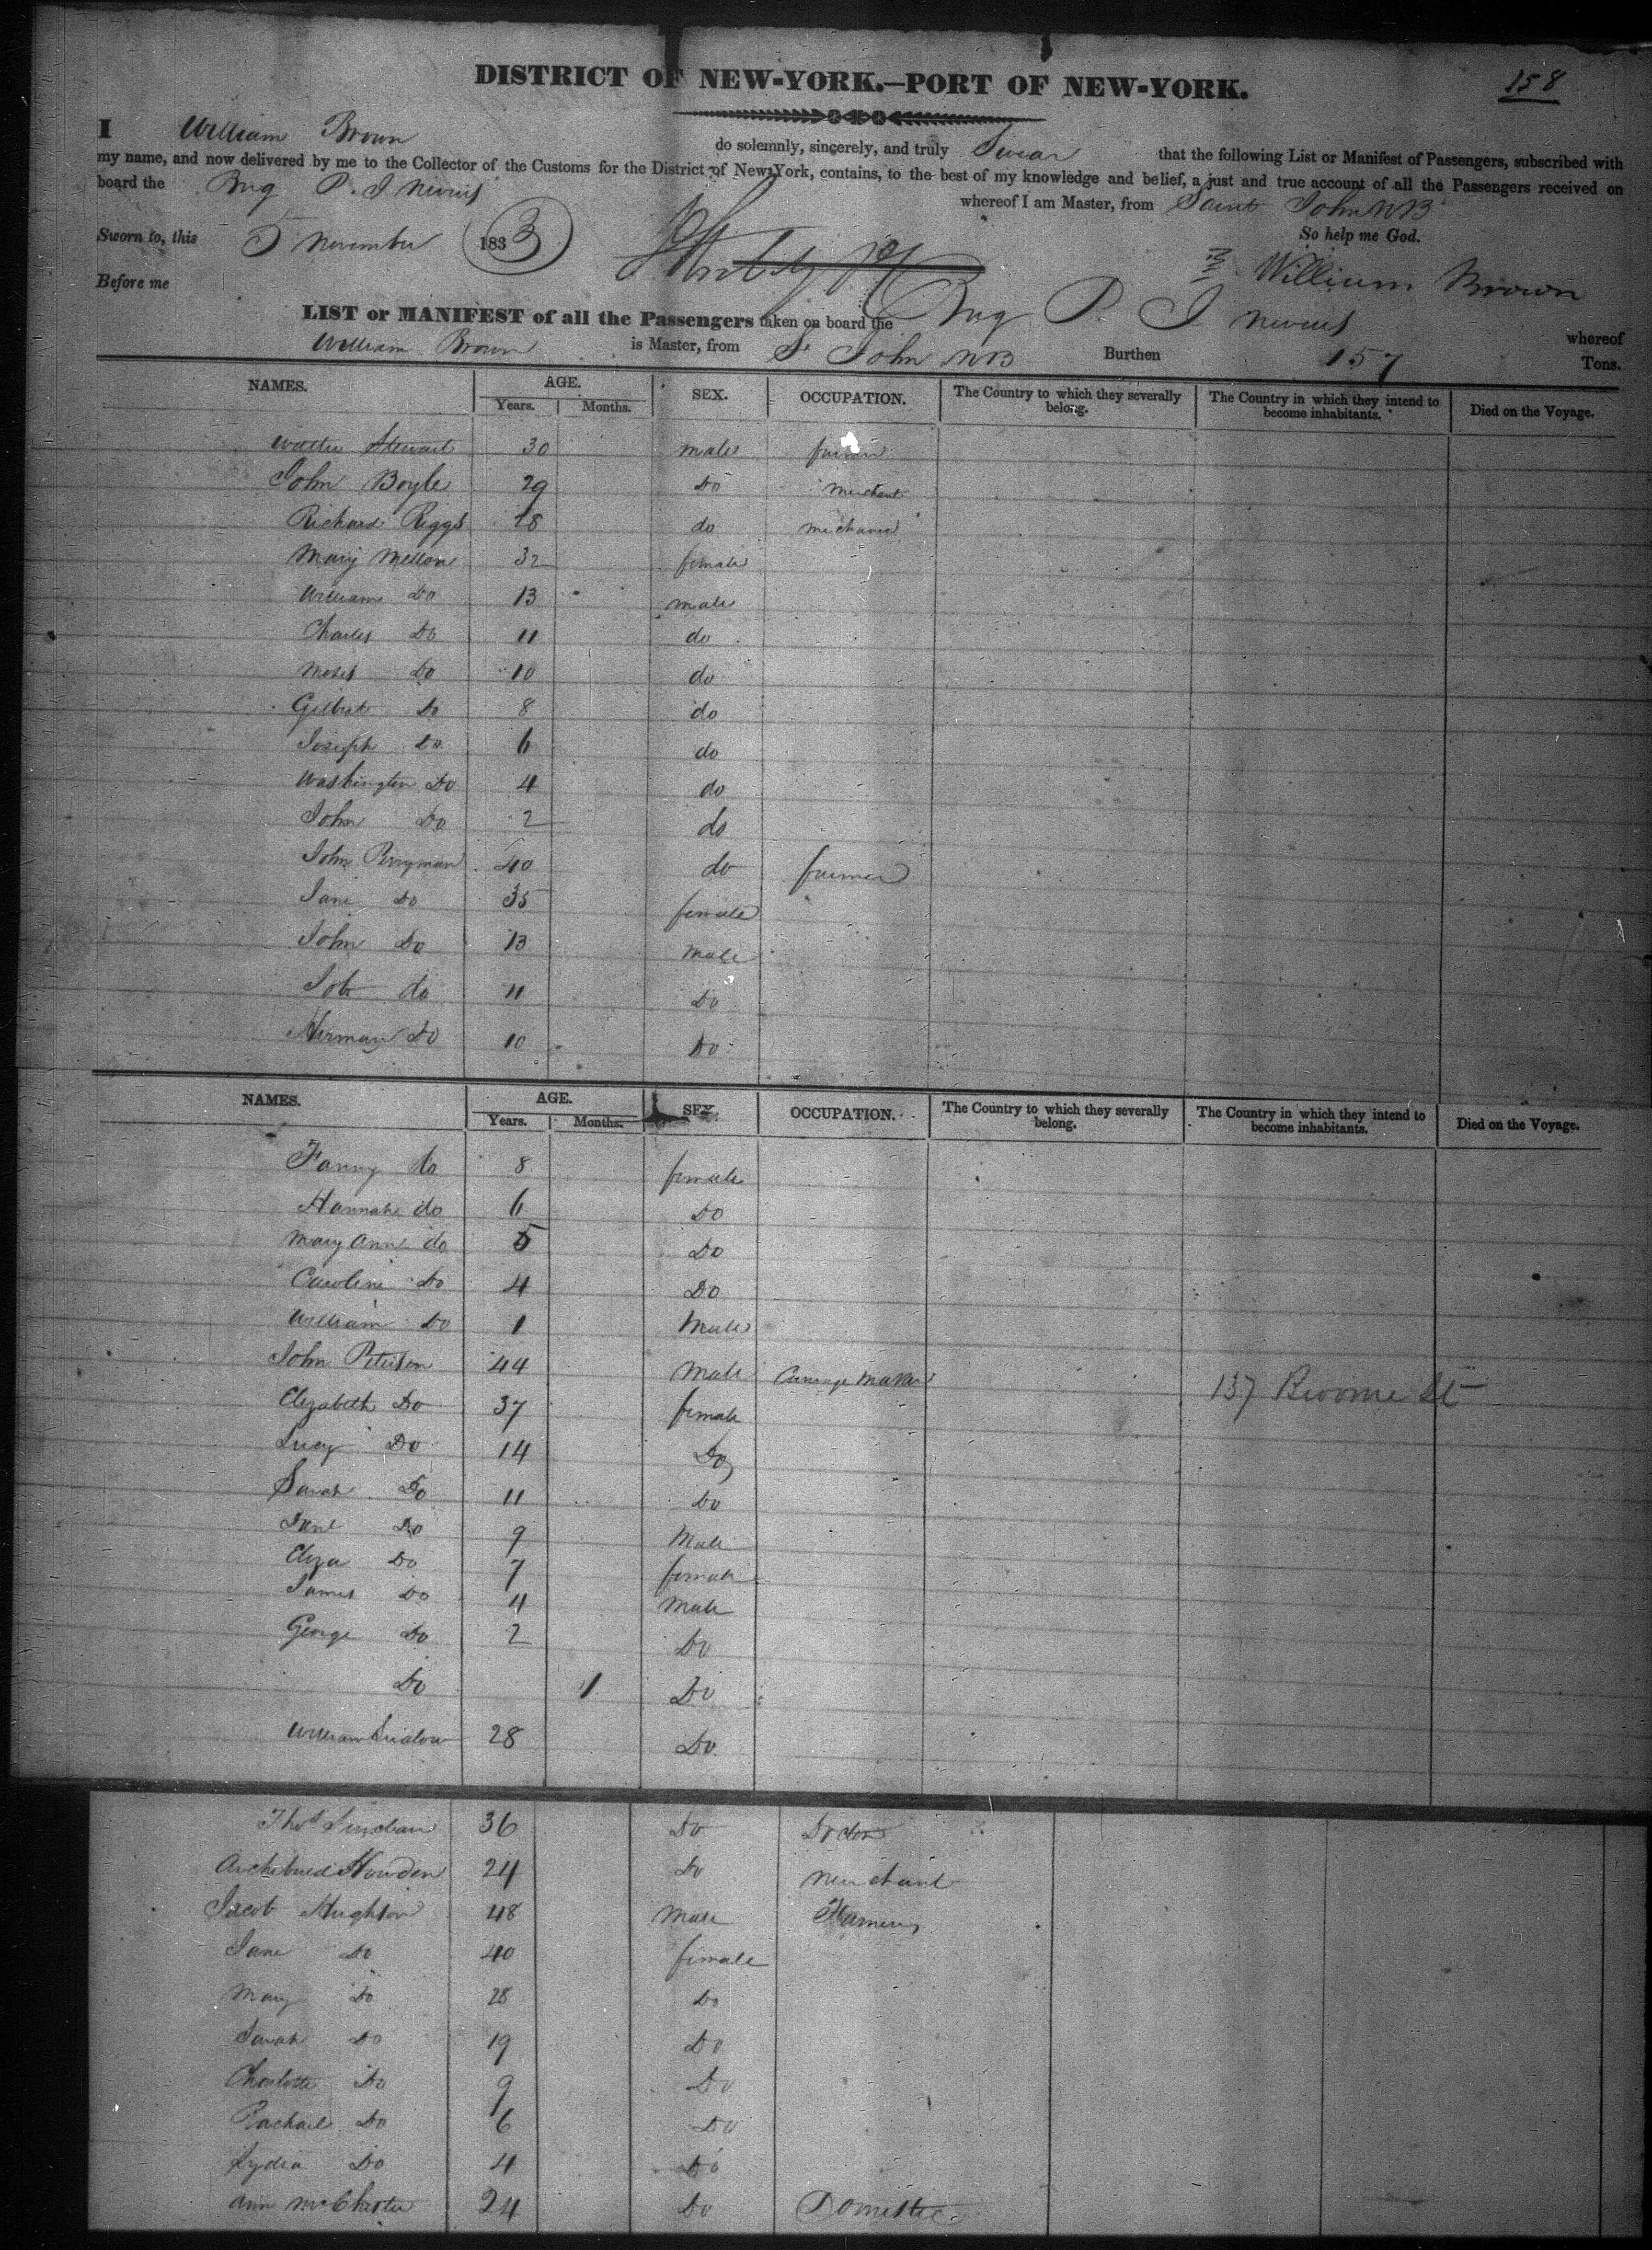 158
DISTRICT OF NEW-YORK.—PORT OF NEW-YORK.
I William Brown do solemnly, sincerely, and truly Swear that the following List or Manifest of Passengers, subscribed with
my name, and now delivered by me to the Collector of the Customs for the District of New-York, contains, to the best of my knowledge and belief, a just and true account of all the Passengers received on
board the Brig P. I Nevius whereof I am Master, from Saint John NB
Sworn to, this 5 November 1833 So help me God.
Before me William Brown
LIST or MANIFEST of all the Passengers taken on board the Brig P. I Nevius whereof
William Brown is Master, from St John NB Burthen 157 Tons.
NAMES. AGE. SEX. OCCUPATION. The Country to which they severally belong. The Country in which they intend to become inhabitants. Died on the Voyage.
Years. Months.
Walter Stewart 30 male farmer
John Boyle 29 Do merchant
Richard Riggs 28 do mechanic
Mary Mellon 32 female
William Do 13 male
Charles Do 11 do
Moses Do 10 do
Gilbert Do 8 do
Joseph Do 6 do
Washington Do 4 do
John Do 2 do
John Perryman 40 do farmer
Jane Do 35 female
John Do 13 male
Job do 11 Do
Herman Do 10 Do
NAMES. AGE. SEX. OCCUPATION. The Country to which they severally belong. The Country in which they intend to become inhabitants. Died on the Voyage.
Years. Months.
Fanny do 8 female
Hannah do 6 Do
Mary Ann do 5 Do
Caroline Do 4 Do
William Do 1 Male
John Peterson 44 Male Carriage Maker 137 Broome St
Elizabeth Do 37 female
Lucy Do 14 Do
Sarah Do 11 Do
Jane Do 9 Male
Eliza Do 7 female
James Do 4 Male
George Do 2 Do
Do 1 Do
William 28 Do
Thos 36 Do Doctor
Archibald Howden 24 Do merchant
Jacob Hughson 48 Male Farmer
Jane Do 40 female
Mary Do 28 Do
Sarah Do 19 Do
Charlotte Do 9 Do
Rachael Do 6 Do
Lydia Do 4 Do
Ann 24 Do Domestic